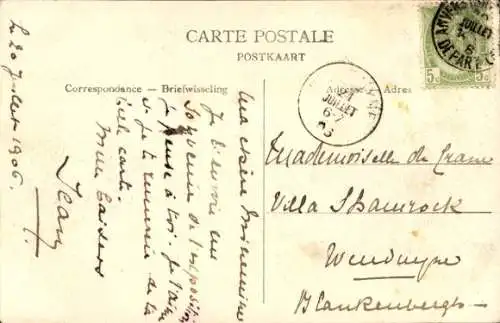 CARTE POSTALE
POSTKAART
Correspondance — Briefwisseling
Adresse Adres
le 20 Juillet 1906.
Ma chère
Je t'envoie un
Souvenir de l'exposition
Je pense à toi je t'aime
et je te remercie de ta
belle carte.
Mille Baisers
Jean
Mademoiselle de
Villa Shamrock
Wenduyne
Blankenberghe
JUILLET
6-7
JUILLET
6
DEPART
5c 5c